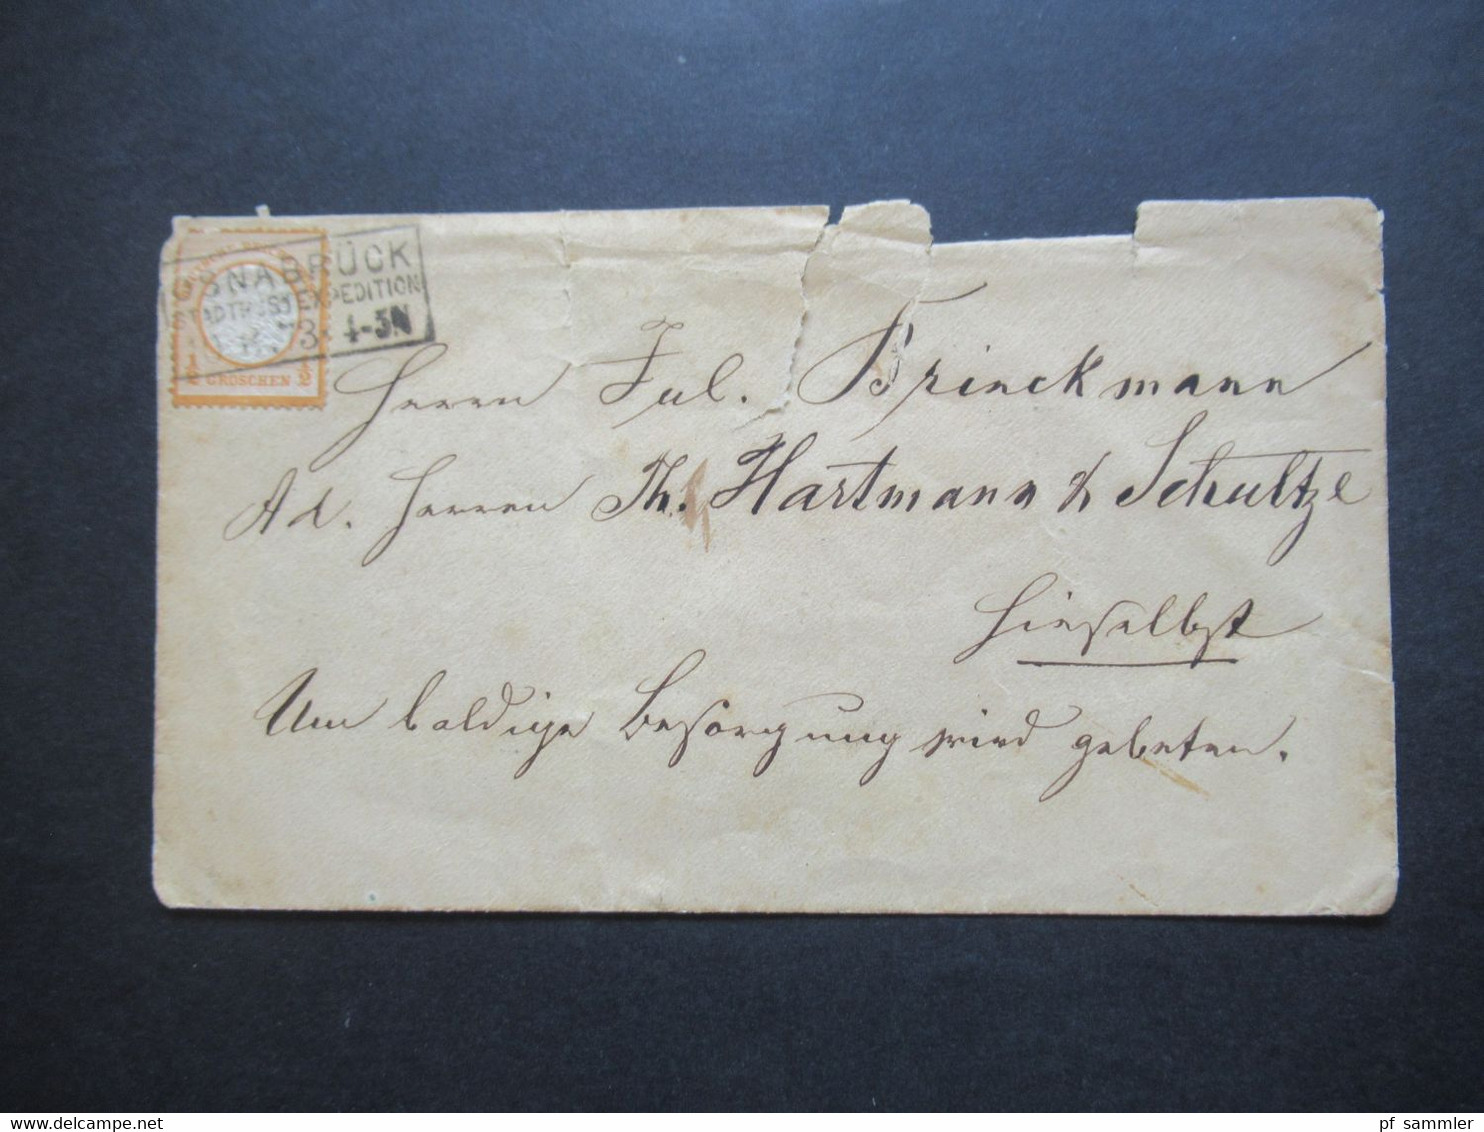 OSNABRÜCK
STADTPOST EXPEDITION
73. 4-5N
½ GROSCHEN ½
Herrn Jul. Brinckmann
Ad. Herren Th. Hartmann & Schultze
Hieselbst
Um baldige Besorgung wird gebeten.
pf sammler